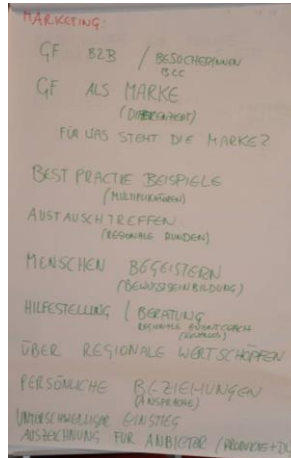 MARKETING:
GF B2B / BESUCHERINNEN
GF ALS MARKE
(DIFFERENZIERT)
FÜR WAS STEHT DIE MARKE?
BEST PRACTIE BEISPIELE
(MULTIPLIKATOREN)
AUSTAUSCHTREFFEN
(REGIONALE RUNDEN)
MENSCHEN BEGEISTERN
(BEWUSSTSEINBILDUNG)
HILFESTELLUNG / BERATUNG
REGIONALE EVENTCOACH
ÜBER REGIONALE WERTSCHÖPFEN
PERSÖNLICHE BEZIEHUNGEN
(ANSPRACHE)
UNTERSCHWELLIGER EINSTIEG
AUSZEICHNUNG FÜR ANBIETER (PRODUKTE+DL)